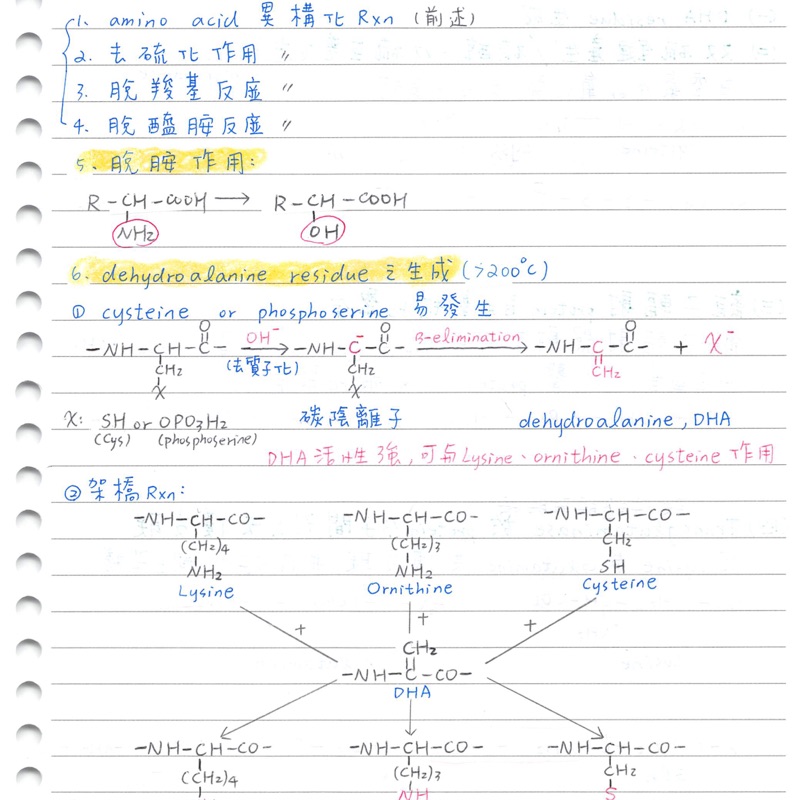 1. amino acid 異構化 Rxn (前述)
2. 去硫化作用 〃
3. 脫羧基反應 〃
4. 脫醯胺反應 〃
5. 脫胺作用:
R-CH-COOH → R-CH-COOH
NH2 OH
6. dehydroalanine residue 之生成 (>200°C)
① cysteine or phosphoserine 易發生
O O O
-NH-CH-C- OH⁻ -NH-C⁻-C- β-elimination -NH-C-C- + X⁻
CH2 (去質子化) CH2 CH2
X X
X: SH or OPO3H2 碳陰離子 dehydroalanine, DHA
(Cys) (phosphoserine)
DHA 活性強, 可与Lysine、ornithine、cysteine 作用
② 架橋 Rxn:
-NH-CH-CO- -NH-CH-CO- -NH-CH-CO-
(CH2)4 (CH2)3 CH2
NH2 NH2 SH
Lysine Ornithine Cysteine
+ + +
CH2
-NH-C-CO-
DHA
-NH-CH-CO- -NH-CH-CO- -NH-CH-CO-
(CH2)4 (CH2)3 CH2
NH S